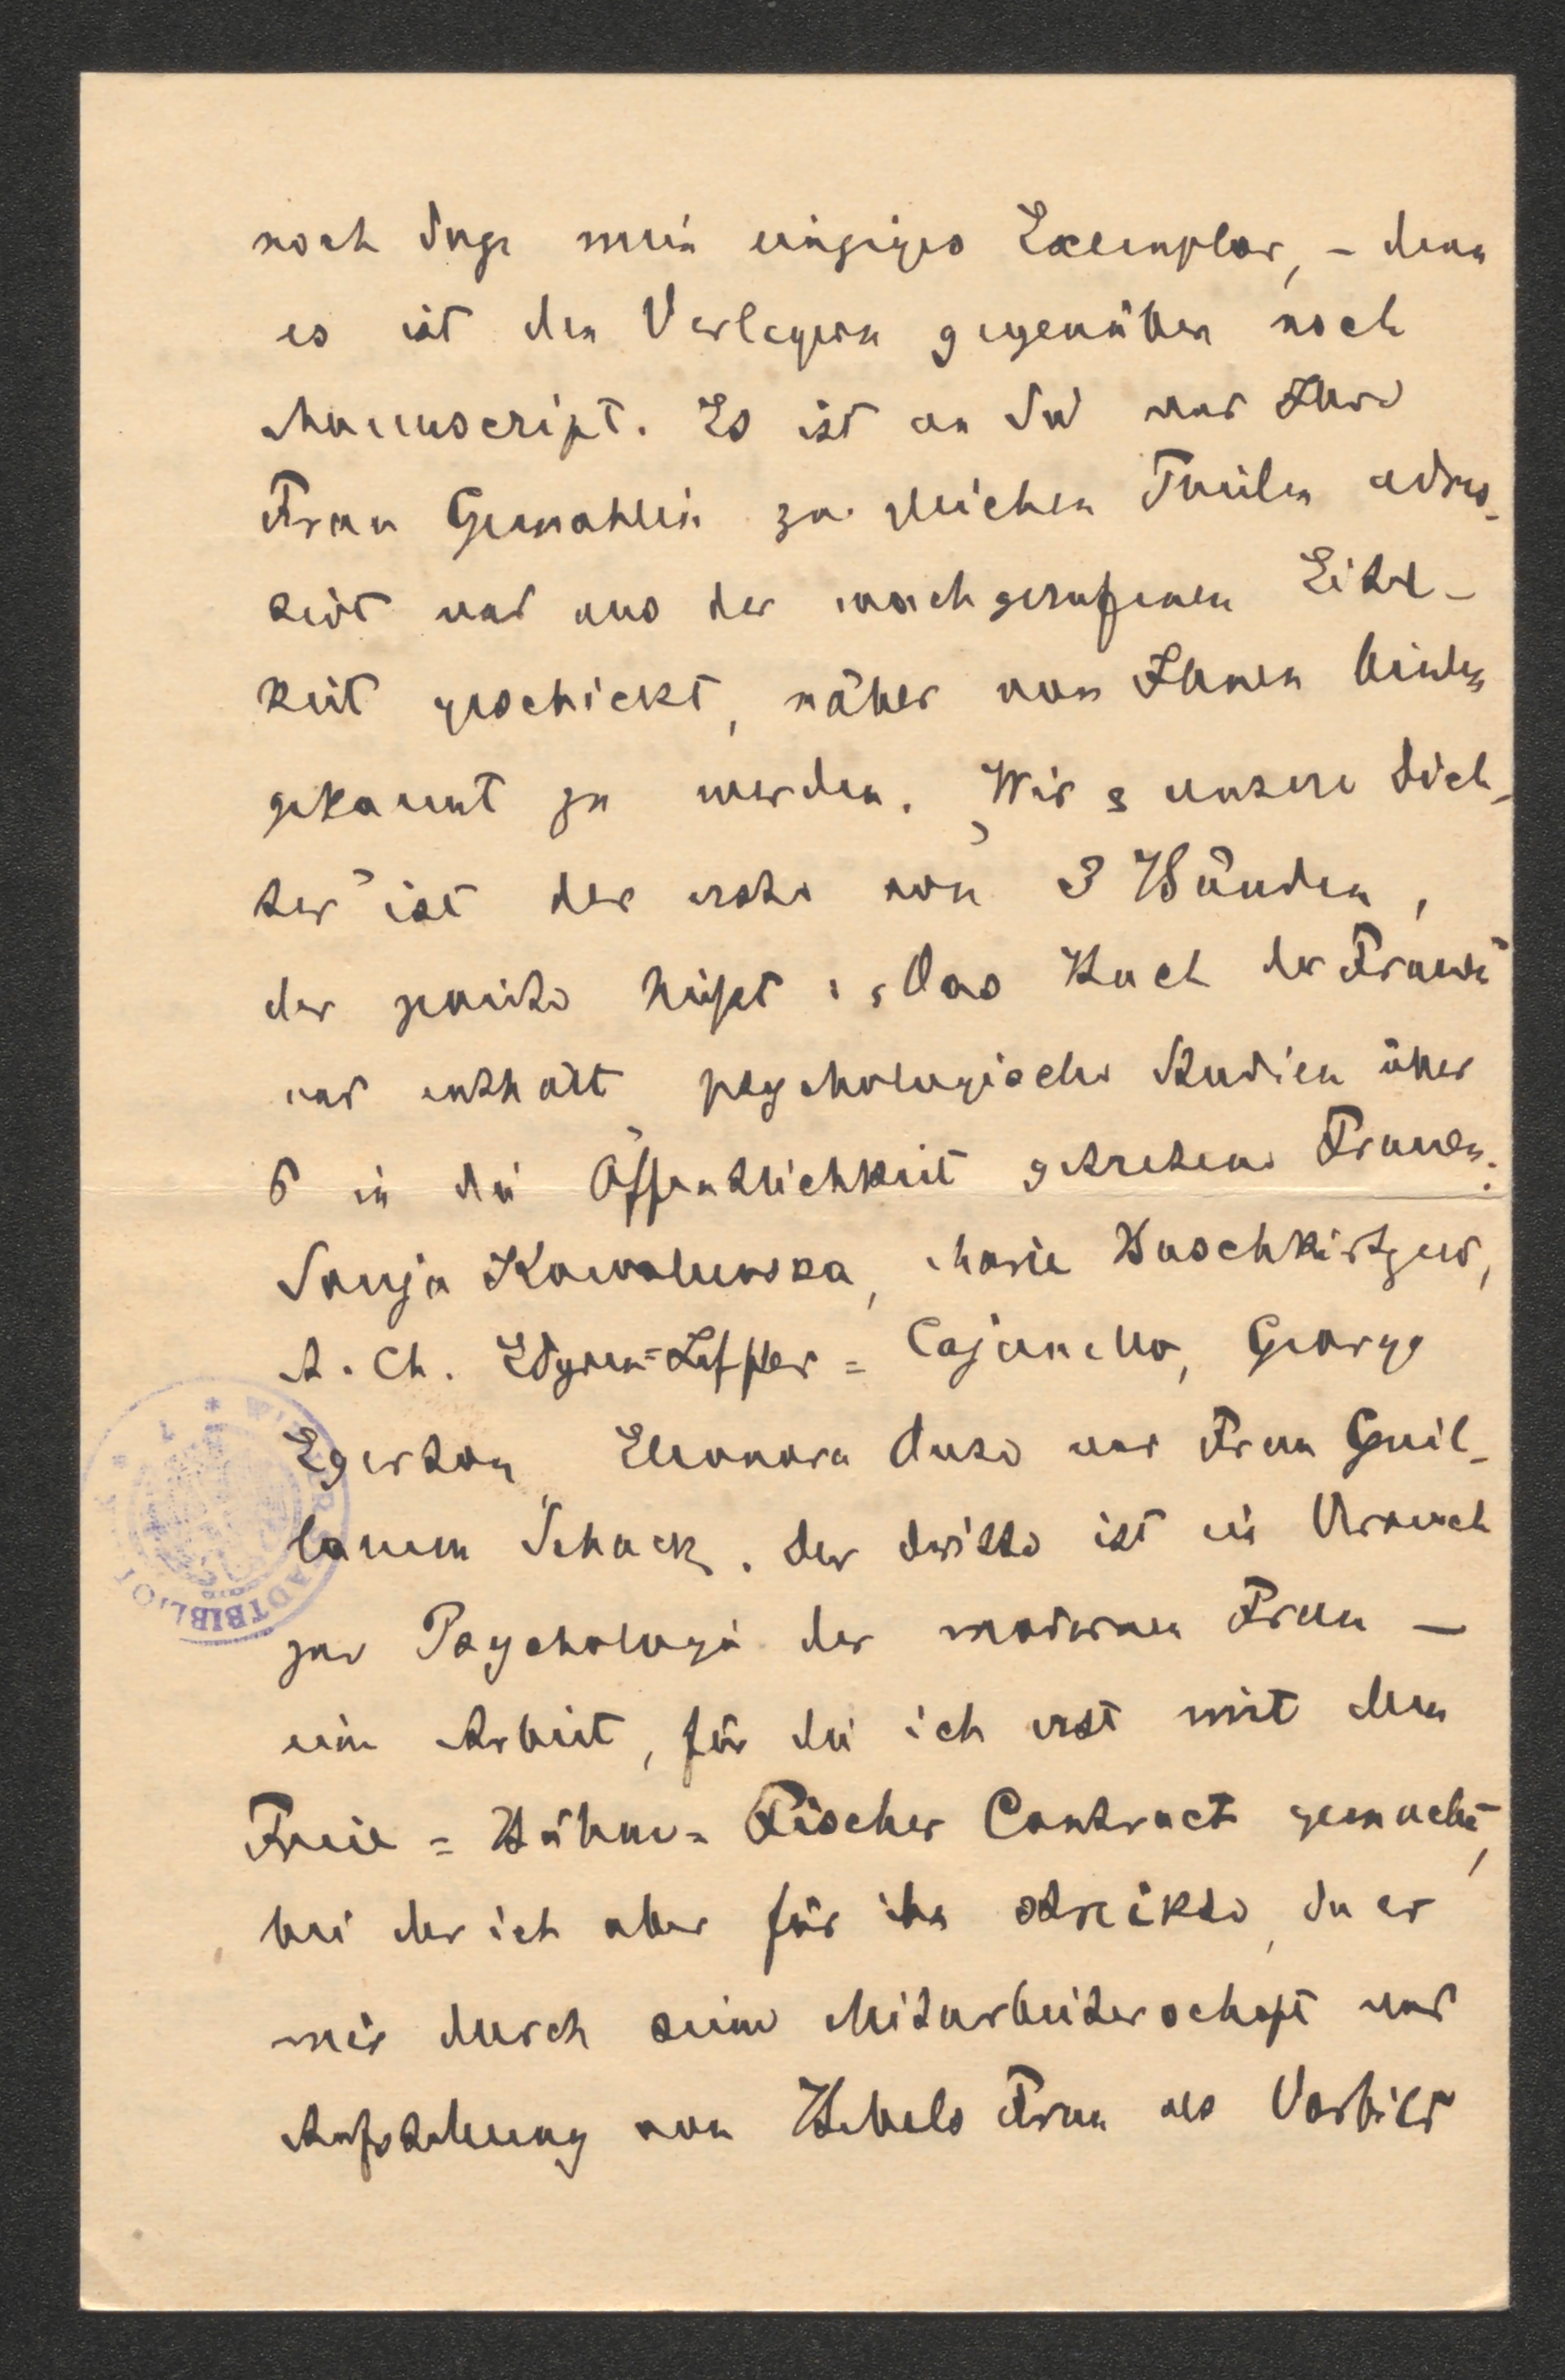 noch dazu mein einziges Exemplar, – denn
es ist den Verlegern gegenüber noch
Manuscript. Es ist an Sie und Ihre
Frau Gemahlin zu gleichen Theilen adres-
sirt und aus der wachgerufenen Eitel-
keit geschickt, näher von Ihnen beiden
gekannt zu werden. „Wir & unsere Dich-
ter" ist der erste von 3 Bänden,
der zweite heißt: „Das Buch der Frauen"
und enthält psychologische Studien über
6 in die Öffentlichkeit getretene Frauen:
Sonja Kowalewska, Marie Baschkirtzew,
A. Ch. Edgren=Leffler=Cajanello, George
Egerton, Eleonora Duse und Frau Guil-
laume Schack. Der dritte ist ein Versuch
zur Psychologie der modernen Frau –
eine Arbeit, für die ich erst mit dem
Freie=Bühne=Fischer Contract gemacht,
bei der ich aber für ihn streikte, da er
mir durch seine Mitarbeiterschaft und
Aufstellung von Bebels Frau als Vorbild